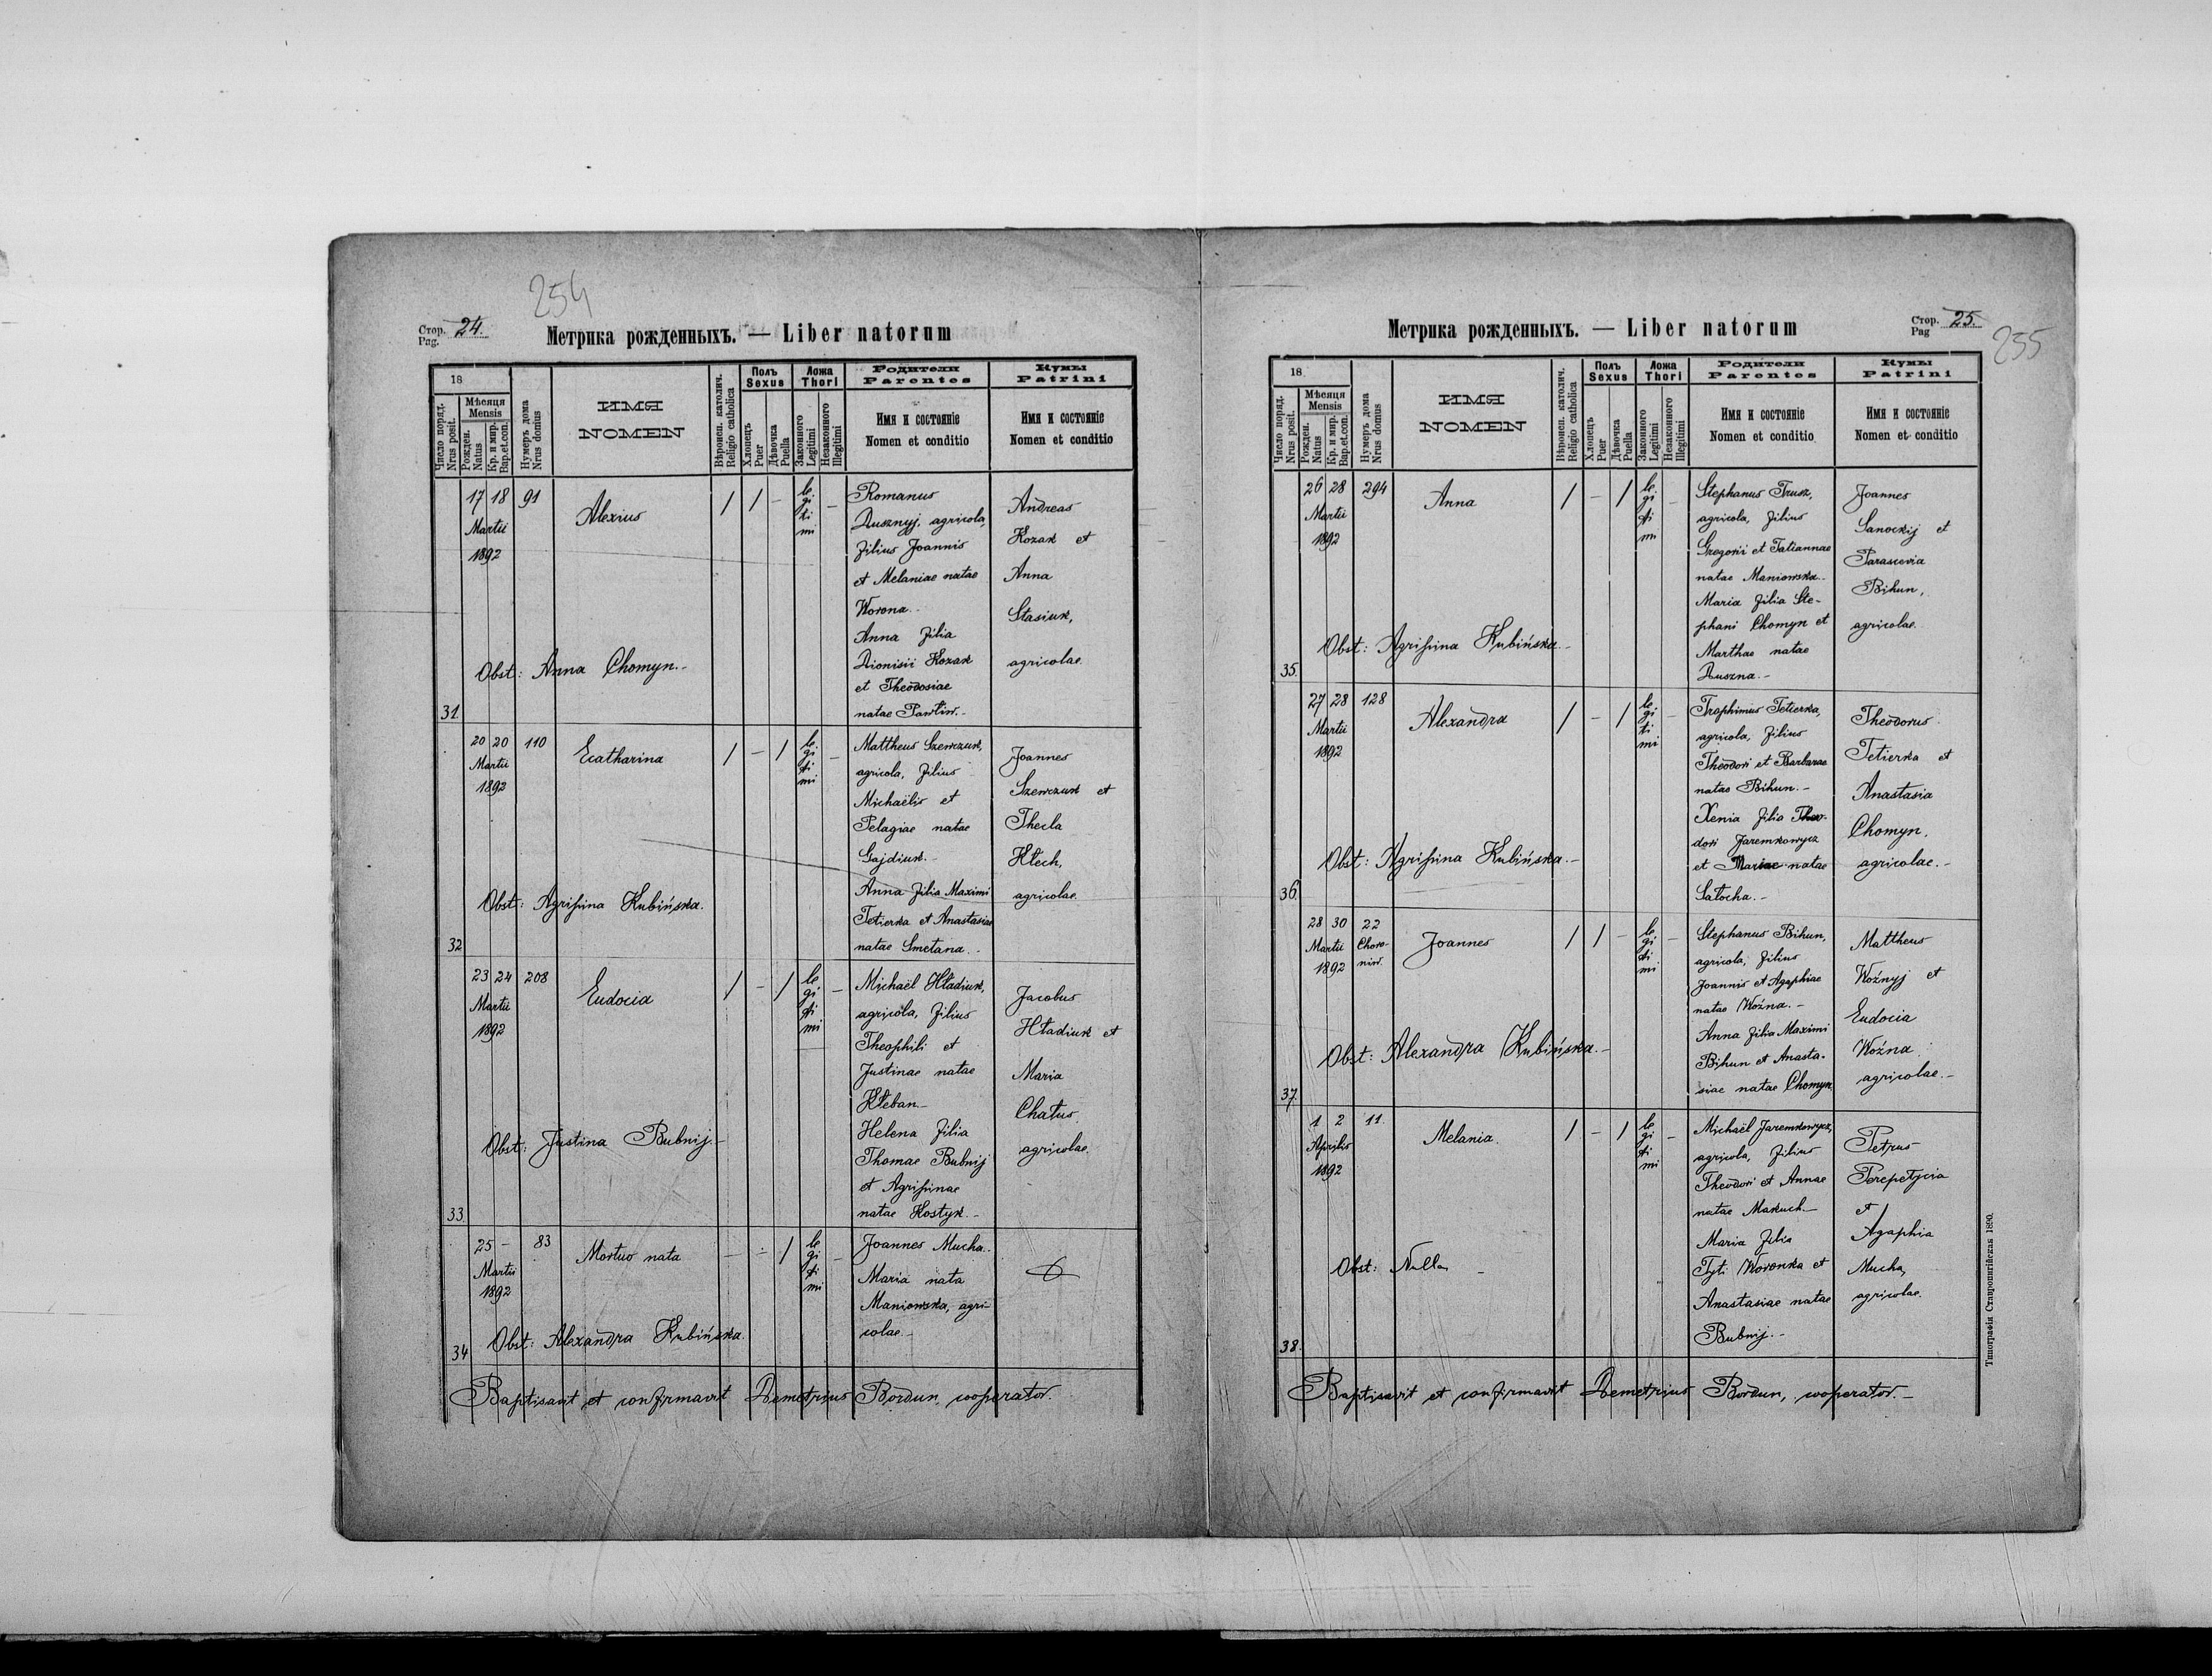 254
Стор. 24.
Pag.
Метрика рожденныхъ. — Liber natorum
18
Число поряд.
Nrus posit.
Мѣсяця
Mensis
Рожден.
Natus
Кр. и мир.
Bap.et.con.
Нумеръ дома
Nrus domus
ИМЯ
NOMEN
Вѣроисп. католич.
Religio catholica
Полъ
Sexus
Хлопецъ
Puer
Дѣвочка
Puella
Ложа
Thori
Законного
Legitimi
Незаконного
Illegitimi
Родители
Parentes
Имя и состоянiе
Nomen et conditio
Кумы
Patrini
Имя и состоянiе
Nomen et conditio
31.
17 18
Martii
1892
91
Alexius
/ / –
le
gi
ti
mi
–
Romanus
Dusznyj, agricola,
filius Joannis
et Melaniae natae
Worona.-
Anna filia
Dionisii Kozak
et Theodosiae
natae Pawliw.-
Andreas
Kozak et
Anna
Stasiuk,
agricolae.
Obst: Anna Chomyn.-
32
20 20
Martii
1892
110
Ecatharina
/ – /
le
gi
ti
mi
–
Mattheus Szewczuk,
agricola, filius
Michaëlis et
Pelagiae natae
Gajdiuk.-
Anna filia Maximi
Tetierka et Anastasiae
natae Smetana.-
Joannes
Szewczuk et
Thecla
Kłech,
agricolae
Obst: Agrippina Kubińska.
33.
23 24
Martii
1892
208
Eudocia
/ – /
le
gi
ti
mi
–
Michaël Hładiuk,
agricola, filius
Theophili et
Justinae natae
Kłeban.-
Helena filia
Thomae Bubnij
et Agrippinae
natae Kostyk.-
Jacobus
Hładiuk et
Maria
Chatus
agricolae.
Obst: Justina Bubnij.-
34
25 –
Martii
1892
83
Mortuo nata
– – /
le
gi
ti
mi
–
Joannes Mucha.
Maria nata
Maniowska, agri-
colae.-
Obst: Alexandra Kubińska.
Baptisavit et confirmavit Demetrius Bordun, cooperator.
Стор. 25.
Pag
255
Метрика рожденныхъ. — Liber natorum
18
Число поряд.
Nrus posit.
Мѣсяця
Mensis
Рожден.
Natus
Кр. и мир.
Bap.et.con.
Нумеръ дома
Nrus domus
ИМЯ
NOMEN
Вѣроисп. католич.
Religio catholica
Полъ
Sexus
Хлопецъ
Puer
Дѣвочка
Puella
Ложа
Thori
Законного
Legitimi
Незаконного
Illegitimi
Родители
Parentes
Имя и состоянiе
Nomen et conditio
Кумы
Patrini
Имя и состоянiе
Nomen et conditio
35.
26 28
Martii
1892
294
Anna
/ – /
le
gi
ti
mi
–
Stephanus Trusz,
agricola, filius
Gregorii et Tatiannae
natae Maniowska.-
Maria filia Ste-
phani Chomyn et
Marthae natae
Duszna.-
Joannes
Sanockij et
Parascevia
Bihun,
agricolae.
Obst: Agrippina Kubińska.-
36.
27 28
Martii
1892
128
Alexandra
/ – /
le
gi
ti
mi
–
Trophimus Tetierka,
agricola, filius
Theodori et Barbarae
natae Bihun.-
Xenia filia Theo-
dori Jaremkowycz
et Mariae natae
Satocha.-
Theodorus
Tetierka et
Anastasia
Chomyn.
agricolae.-
Obst: Agrippina Kubińska.-
37.
28 30
Martii
1892
22
Choro-
niw.
Joannes
/ / –
le
gi
ti
mi
–
Stephanus Bihun,
agricola, filius
Joannis et Agaphiae
natae Woźna.-
Anna filia Maximi
Bihun et Anasta-
siae natae Chomyn.
Mattheus
Woźnyj et
Eudocia
Woźna
agricolae.-
Obst: Alexandra Kubińska.-
38.
1 2
Aprilis
1892
11.
Melania.
/ – /
le
gi
ti
mi
–
Michaël Jaremkowycz,
agricola, filius
Theodori et Annae
natae Makuch.-
Maria filia
Tyti Woronka et
Anastasiae natae
Bubnij.-
Petrus
Perepetycia
et
Agaphia
Mucha,
agricolae.
Obst: Nulla –
Baptisavit et confirmavit Demetrius Bordun, cooperator.-
Типографiя Ставропигiйская 1890.